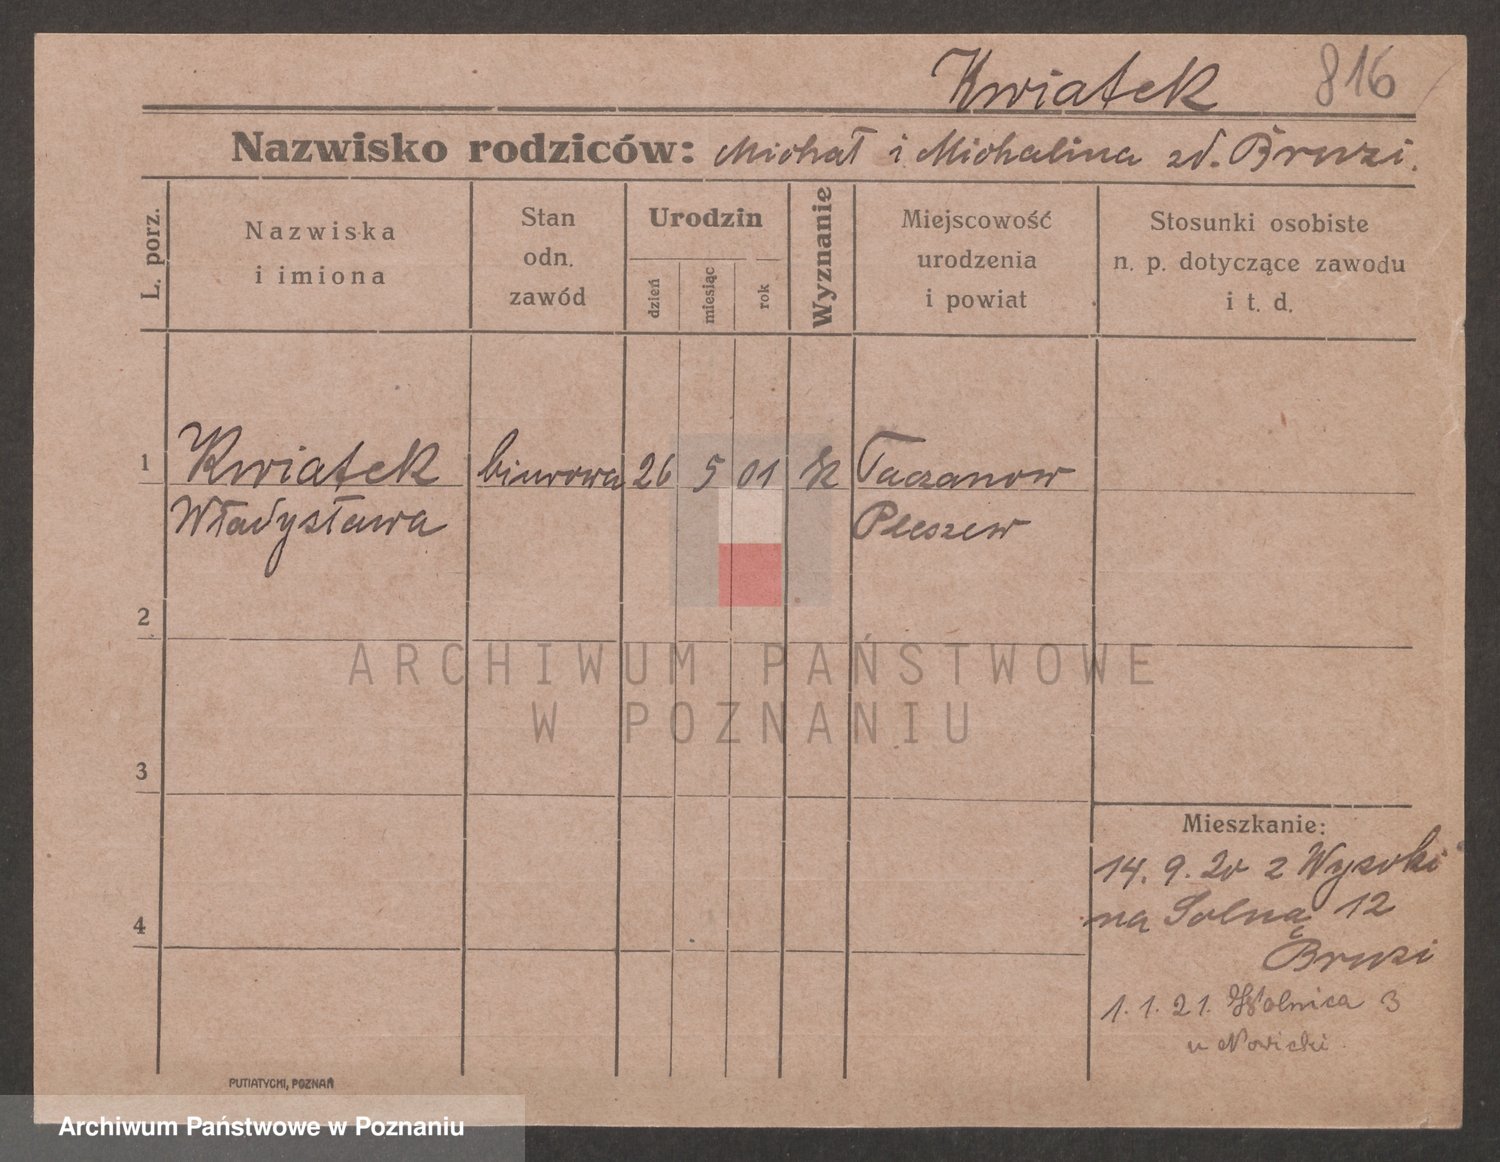 Kwiatek 816
Nazwisko rodziców: Michał i Michalina zd. Bruzi.
L. porz.
Nazwiska
i imiona
Stan
odn.
zawód
Urodzin
dzień
miesiąc
rok
Wyznanie
Miejscowość
urodzenia
i powiat
Stosunki osobiste
n. p. dotyczące zawodu
i t. d.
1 Kwiatek biurowa 26 5 01 k Taczanow
Władysława Pleszew
2
ARCHIWUM PAŃSTWOWE
W POZNANIU
3
Mieszkanie:
14. 9. 20 z Wysoki
na Solną 12
4
Bruzi
1. 1. 21. Wolnica 3
u Nowicki
PUTIATYCKI, POZNAŃ
Archiwum Państwowe w Poznaniu